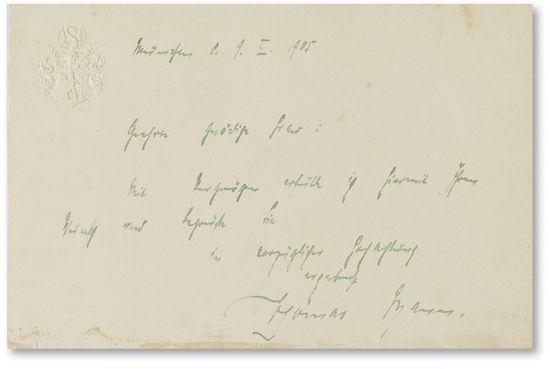 München d. 9. 1905
Geehrte gnädige Frau:
Mit Vergnügen erfülle ich hiermit Ihren
Wunsch und begrüße Sie
in vorzüglicher Hochachtung
ergebenst
Thomas Mann.